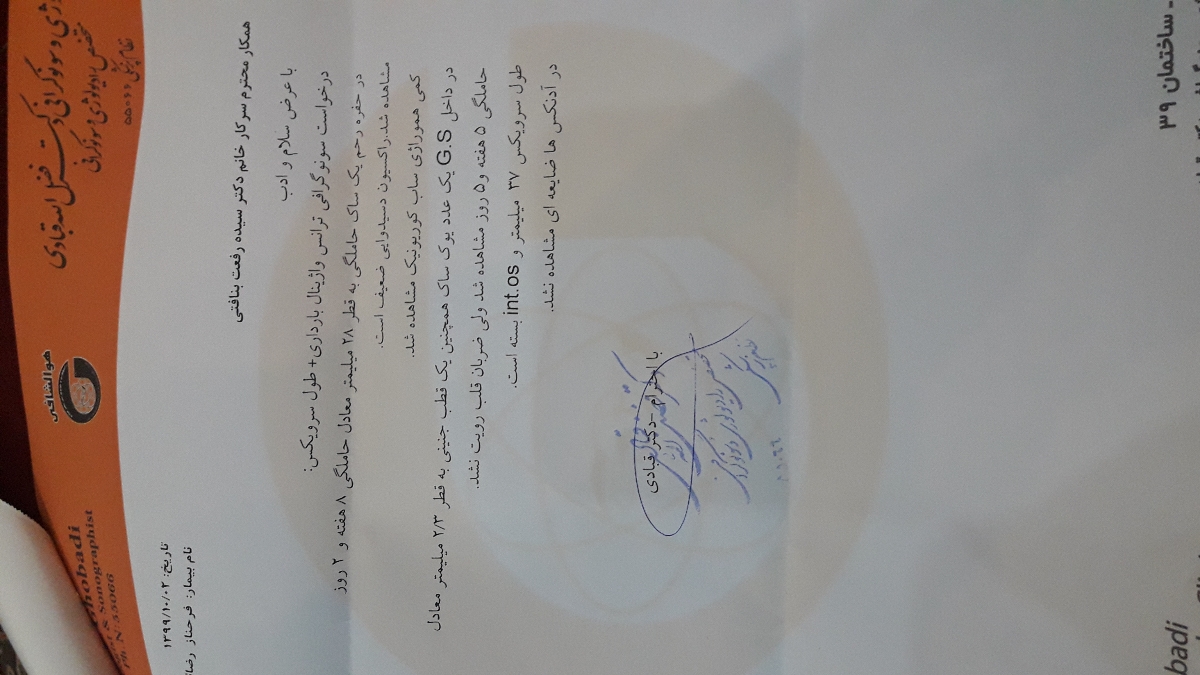 رادیولوژی و سونوگرافی دکتر فضل اله قبادی
متخصص رادیولوژی و سونوگرافی
نظام پزشکی ۵۵۰۶۶
هوالشافی
hobadi
& Sonographist
Ph. N: 55066
تاریخ: ۱۳۹۹/۱۰/۰۲
نام بیمار: فرحناز
همکار محترم سرکار خانم دکتر سیده رفعت بنافتی
با عرض سلام و ادب
درخواست سونوگرافی ترانس واژینال بارداری+ طول سرویکس:
در حفره رحم یک ساک حاملگی به قطر ۲۸ میلیمتر معادل حاملگی ۸ هفته و ۲ روز
مشاهده شد.راکسیون دسیدوایی ضعیف است.
کمی هموراژی ساب کوریونیک مشاهده شد.
در داخل G.S یک عدد یوک ساک همچنین یک قطب جنینی به قطر ۲/۳ میلیمتر معادل
حاملگی ۵ هفته و ۵ روز مشاهده شد ولی ضربان قلب رویت نشد.
طول سرویکس ۳۷ میلیمتر و int.os بسته است.
در آدنکس ها ضایعه ای مشاهده نشد.
با احترام -دکتر قبادی
متخصص رادیولوژی و سونوگرافی
- ساختمان ۳۹
badi